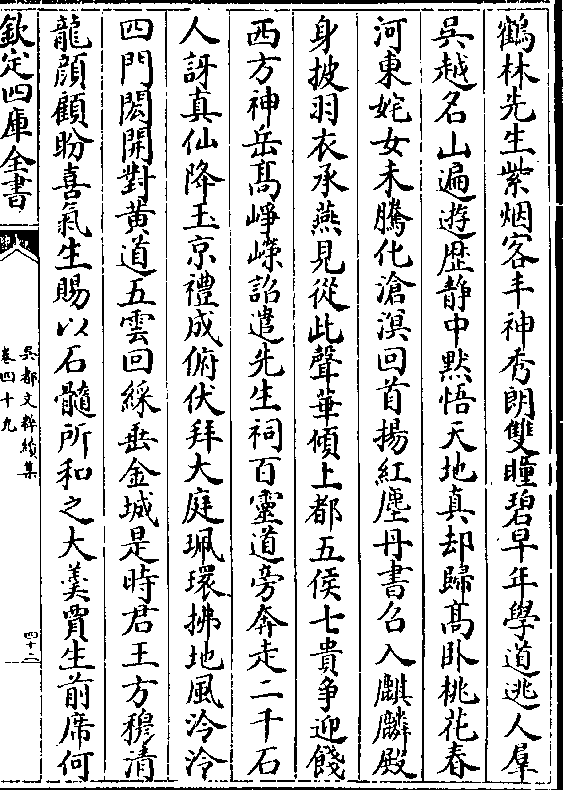 鶴林先生紫烟客丰神秀朗雙瞳碧早年學道逃人羣
吳越名山遍遊歷静中黙悟天地真却歸髙卧桃花春
河東姹女未騰化滄溟回首揚紅塵丹書召入麒麟殿
身披羽衣承燕見從此聲華傾上都五侯七貴争迎餞
西方神岳髙崢嶸詔遣先生祠百靈道旁奔走二千石
人訝真仙降玉京禮成俯伏拜大庭珮環拂地風泠泠
四門閎開對黄道五雲回綵垂金城是時君王方穆清
龍顔顧盼喜氣生賜以石髓所和之大羹賈生前席何
欽定四庫全書
吳都文粹續集
卷四十九
四十二